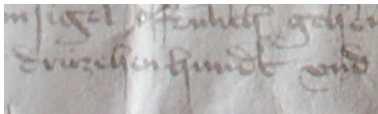 insigel offenlich gehen
druzehenhundt vnd